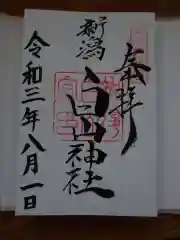 奉拝
新潟
白山神社
令和三年八月一日